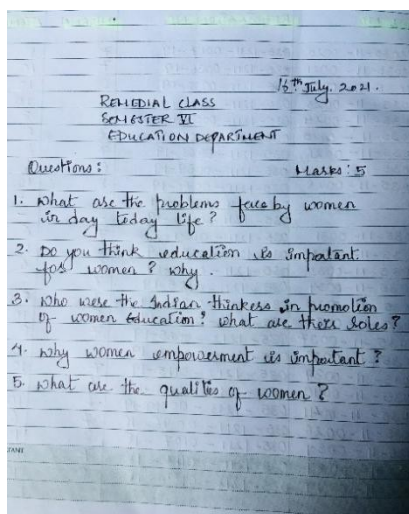 16th July. 2021.
REMEDIAL CLASS
SEMESTER VI
EDUCATION DEPARTMENT
Questions: Marks: 5
1. What are the problems face by women
in day today life?
2. Do you think education is impotant
for women? why.
3. Who were the Indian thinkers in promotion
of women Education? What are there roles?
4. Why women empowerment is impotant?
5. What are the qualities of women?